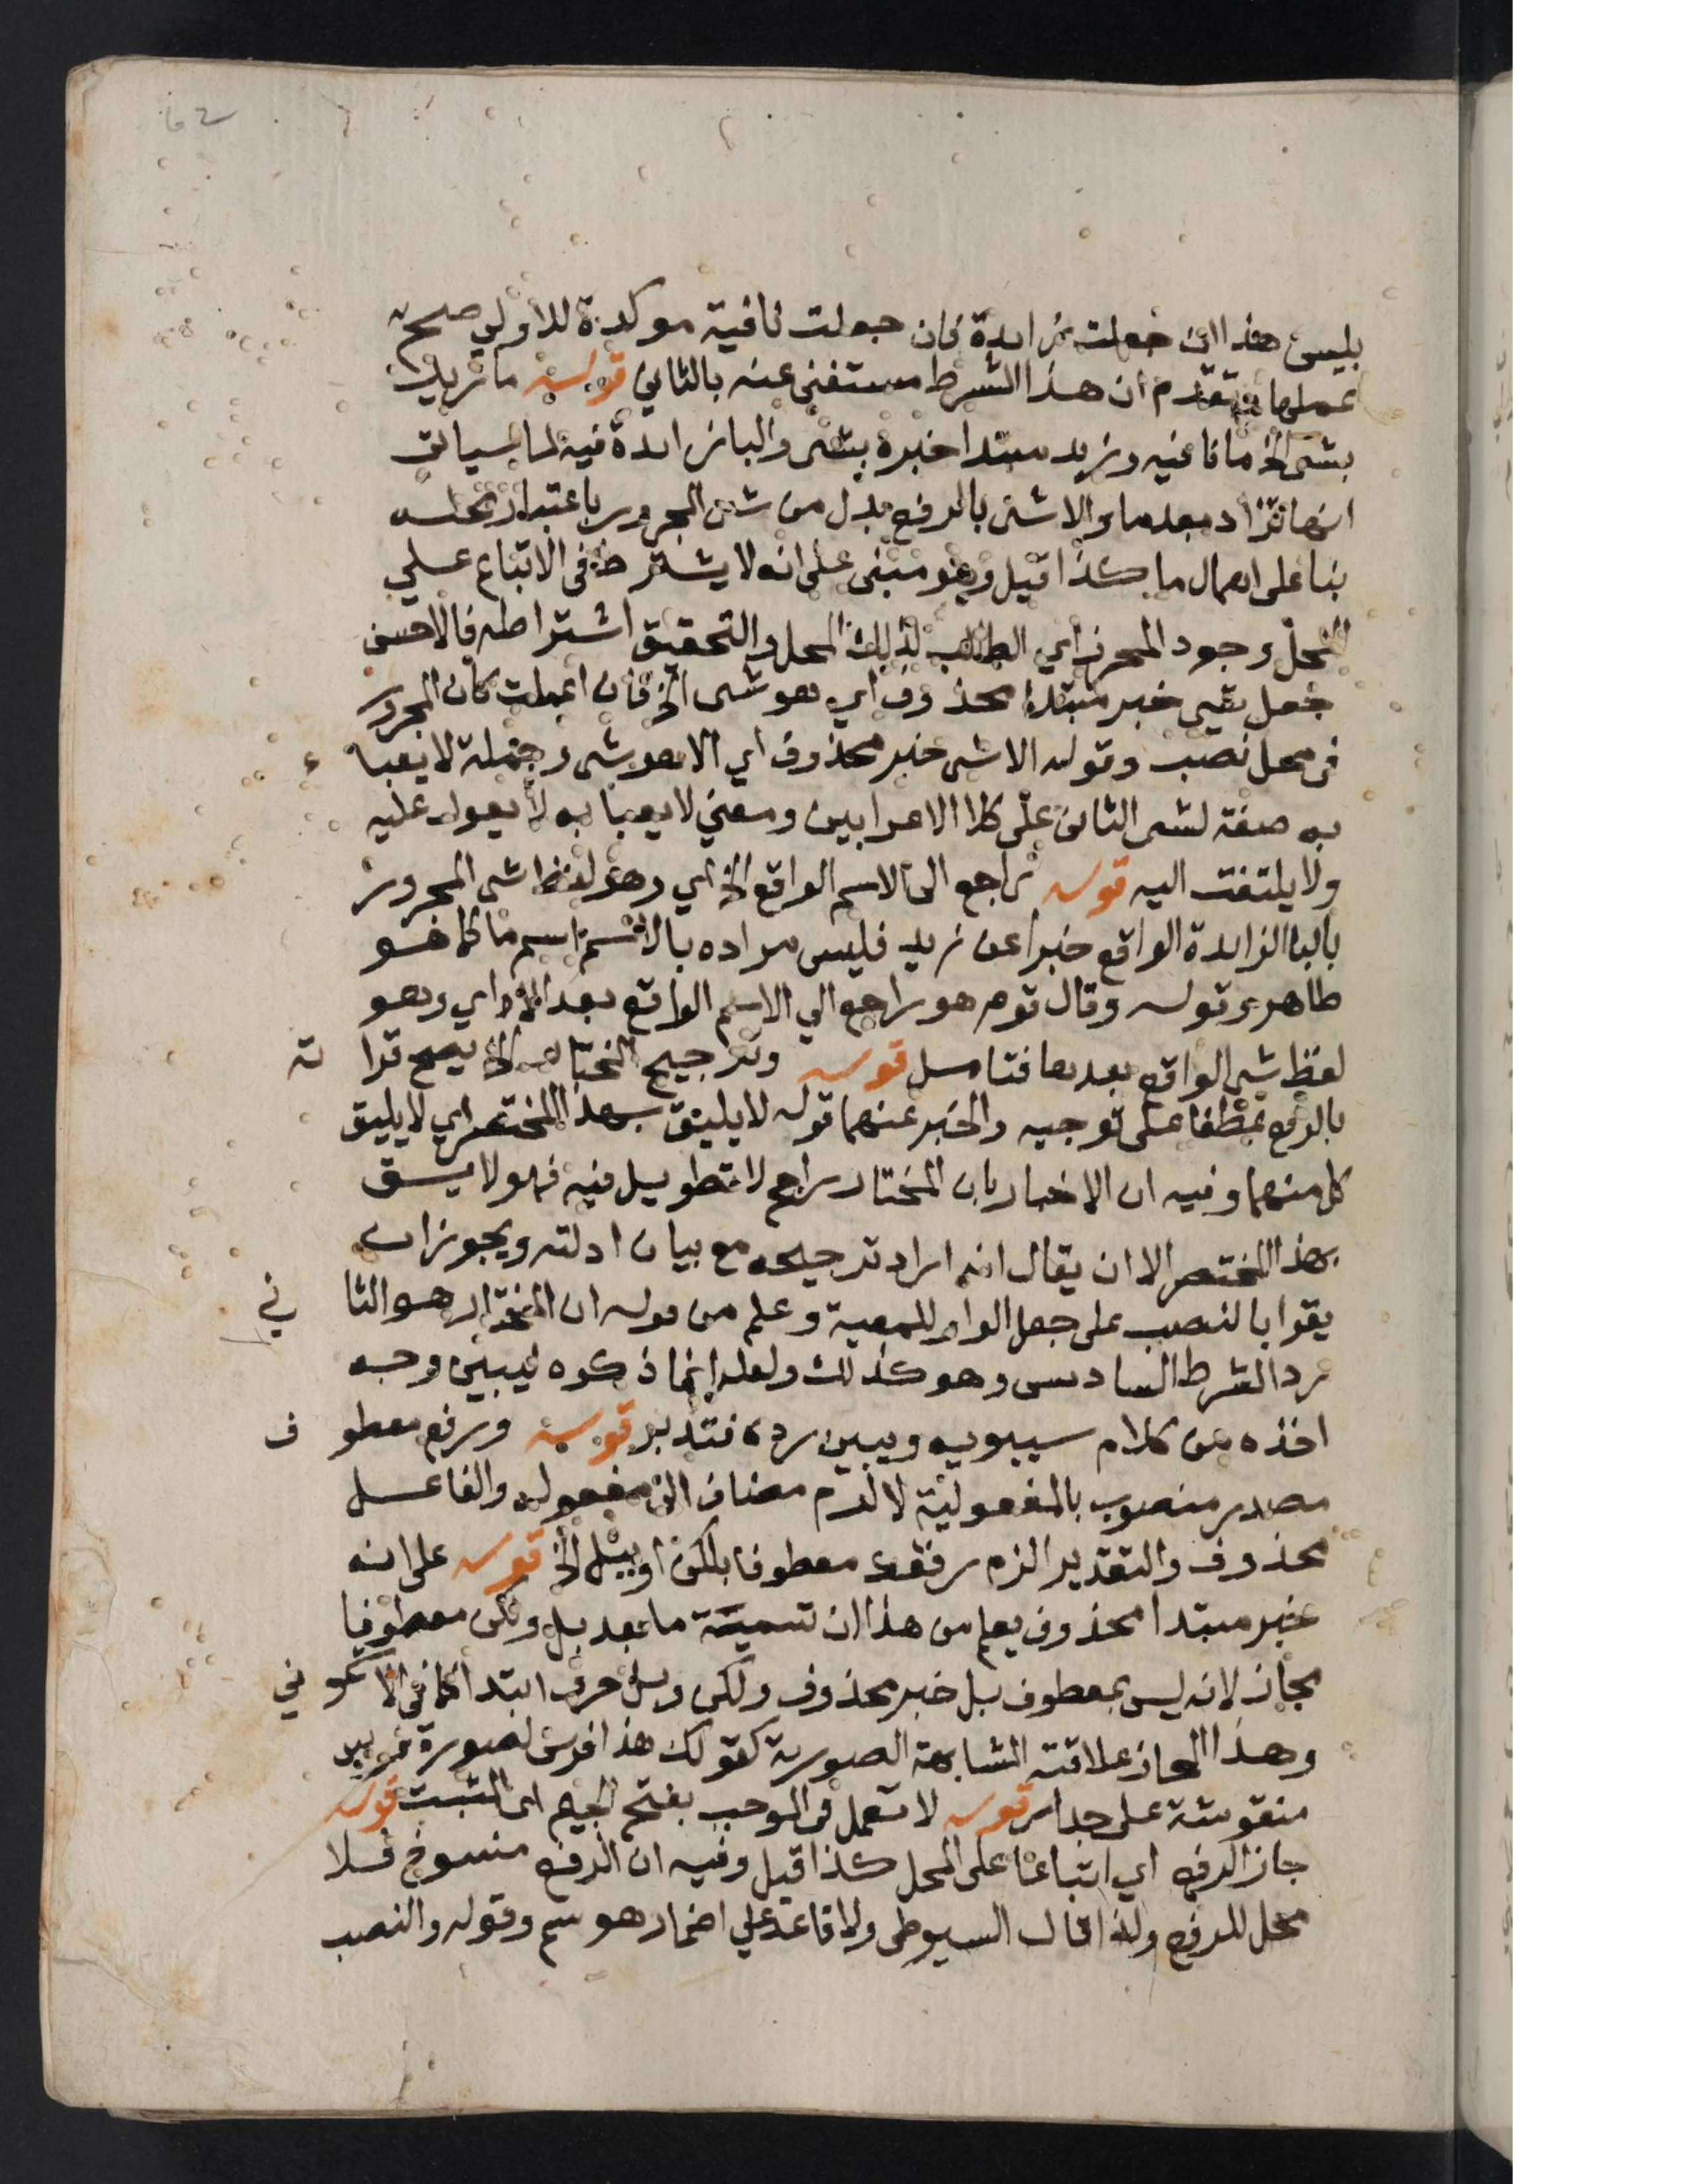 بليس هذا ان جعلت زايدة فان جعلت نافية موكدة للاولي صح
عملها وتقدم ان هذا الشرط مستغنى عنه بالثاني قوله ما زيد
بشي الخ ما نافيه وزيد مبتدا خبره بشي والبا زايدة فيه لما سياتي
انها تزاد بعد ما والا شي بالرفع بدل من شي المجرور باعتبار محله
بنا على اهمال ما كذا قيل وهو مبنى على انه لا يشترط فى الاتباع علي
المحل وجود المحرز اي الطالب لذلك المحل والتحقيق اشتراطه فالاحسن
جعل شي خبر مبتدا محذوف اي هو شي الخ فان اعملت كان المجرور
فى محل نصب وقوله الا شي خبر محذوف اي الا هو شي وجملة لا يعبا ء
به صفة لشي الثانى على كلا الاعرابين ومعني لا يعبا به لا يعول عليه
ولا يلتفت اليه قوله راجع الى الاسم الواقع الخ اي وهو لفظ شي المجرور
بالبا الزايدة الواقع خبرا عن زيد فليس مراده بالاسم اسم ما كما هو
ظاهر وقوله وقال قوم هو راجع الي الاسم الواقع بعد الا اي وهو
لفظ شي الواقع بعدها فتامل قوله وترجيح المختار الخ يصح قرا ته
بالرفع عطفا على توجيه والخبر عنهما قوله لا يليق بهذا المختصر اي لا يليق
كل منهما وفيه ان الاخبار بان المختار راجح لا تطويل فيه فهو لا يسق
بهذا المختصر الا ان يقال انه اراد ترجيحه مع بيان ادلته ويجوز ان
يقرا بالنصب على جعل الواو للمعية وعلم من قوله ان المختار هو الثا ني
رد الشرط السادس وهو كذلك ولعله انما ذكره ليبين وجه
اخذه من كلام سيبويه ويبين رده فتدبر قوله ورفع معطو ف
مصدر منصوب بالمفعولية لالزم مضاف الى مفعوله والفاعل
محذوف والتقدير الزم رفعك معطوفا بلكن او ببل الخ قوله على انه
خبر مبتدا محذوف يعلم من هذا ان تسمية ما بعد بل ولكن معطوفا
مجاز لانه ليس بمعطوف بل خبر محذوف ولكن وبل حرف ابتدا كما في الا شمو ني
وهذا المجاز علاقته المشابهة الصورية كقولك هذا فرس لصورة فرس
منقوشة على جدار قوله لا تعمل فى الموجب بفتح الجيم اى المثبت قوله
جاز الرفع اي اتباعا على المحل كذا قيل وفيه ان الرفع منسوخ فلا
محل للرفع ولذا قال السيوطى ولا قاعد علي اضمار هو سم وقوله والنصب